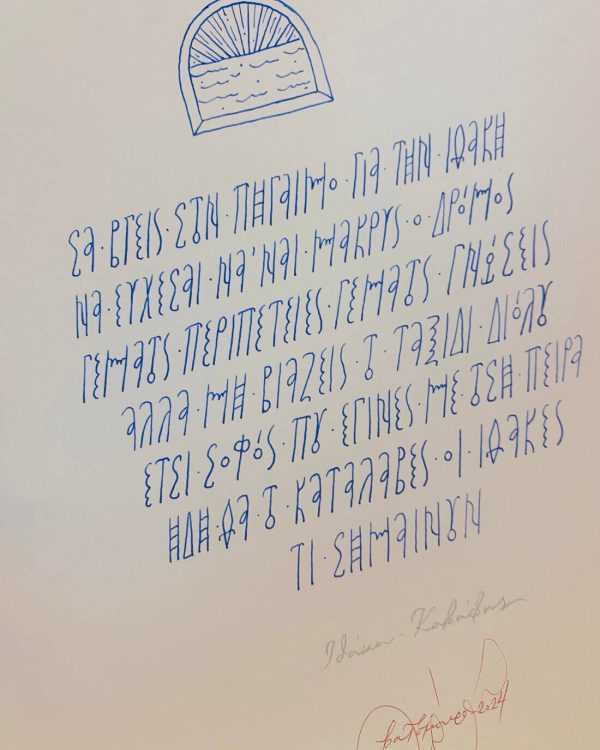 ΣΑ·ΒΓΕΙΣ·ΣΤΟΝ·ΠΗΓΑΙΜΟ·ΓΙΑ·ΤΗΝ·ΙΘΑΚΗ
ΝΑ·ΕΥΧΕΣΑΙ·ΝΑ'ΝΑΙ·ΜΑΚΡΥΣ·Ο·ΔΡΌΜΟΣ
ΓΕΜΑΤΟΣ·ΠΕΡΙΠΕΤΕΙΕΣ·ΓΕΜΑΤΟΣ·ΓΝΏΣΕΙΣ
ΑΛΛΑ·ΜΗ·ΒΙΑΖΕΙΣ·ΤΟ·ΤΑΞΙΔΙ·ΔΙΌΛΟΥ
ΕΤΣΙ·ΣΟΦΌΣ·ΠΟΥ·ΕΓΙΝΕΣ·ΜΕ·ΤΟΣΗ·ΠΕΙΡΑ
ΗΔΗ·ΘΑ·ΤΟ·ΚΑΤΑΛΑΒΕΣ·ΟΙ·ΙΘΑΚΕΣ
ΤΙ·ΣΗΜΑΙΝΟΥΝ
Ιθάκη - Καβάφης
2024